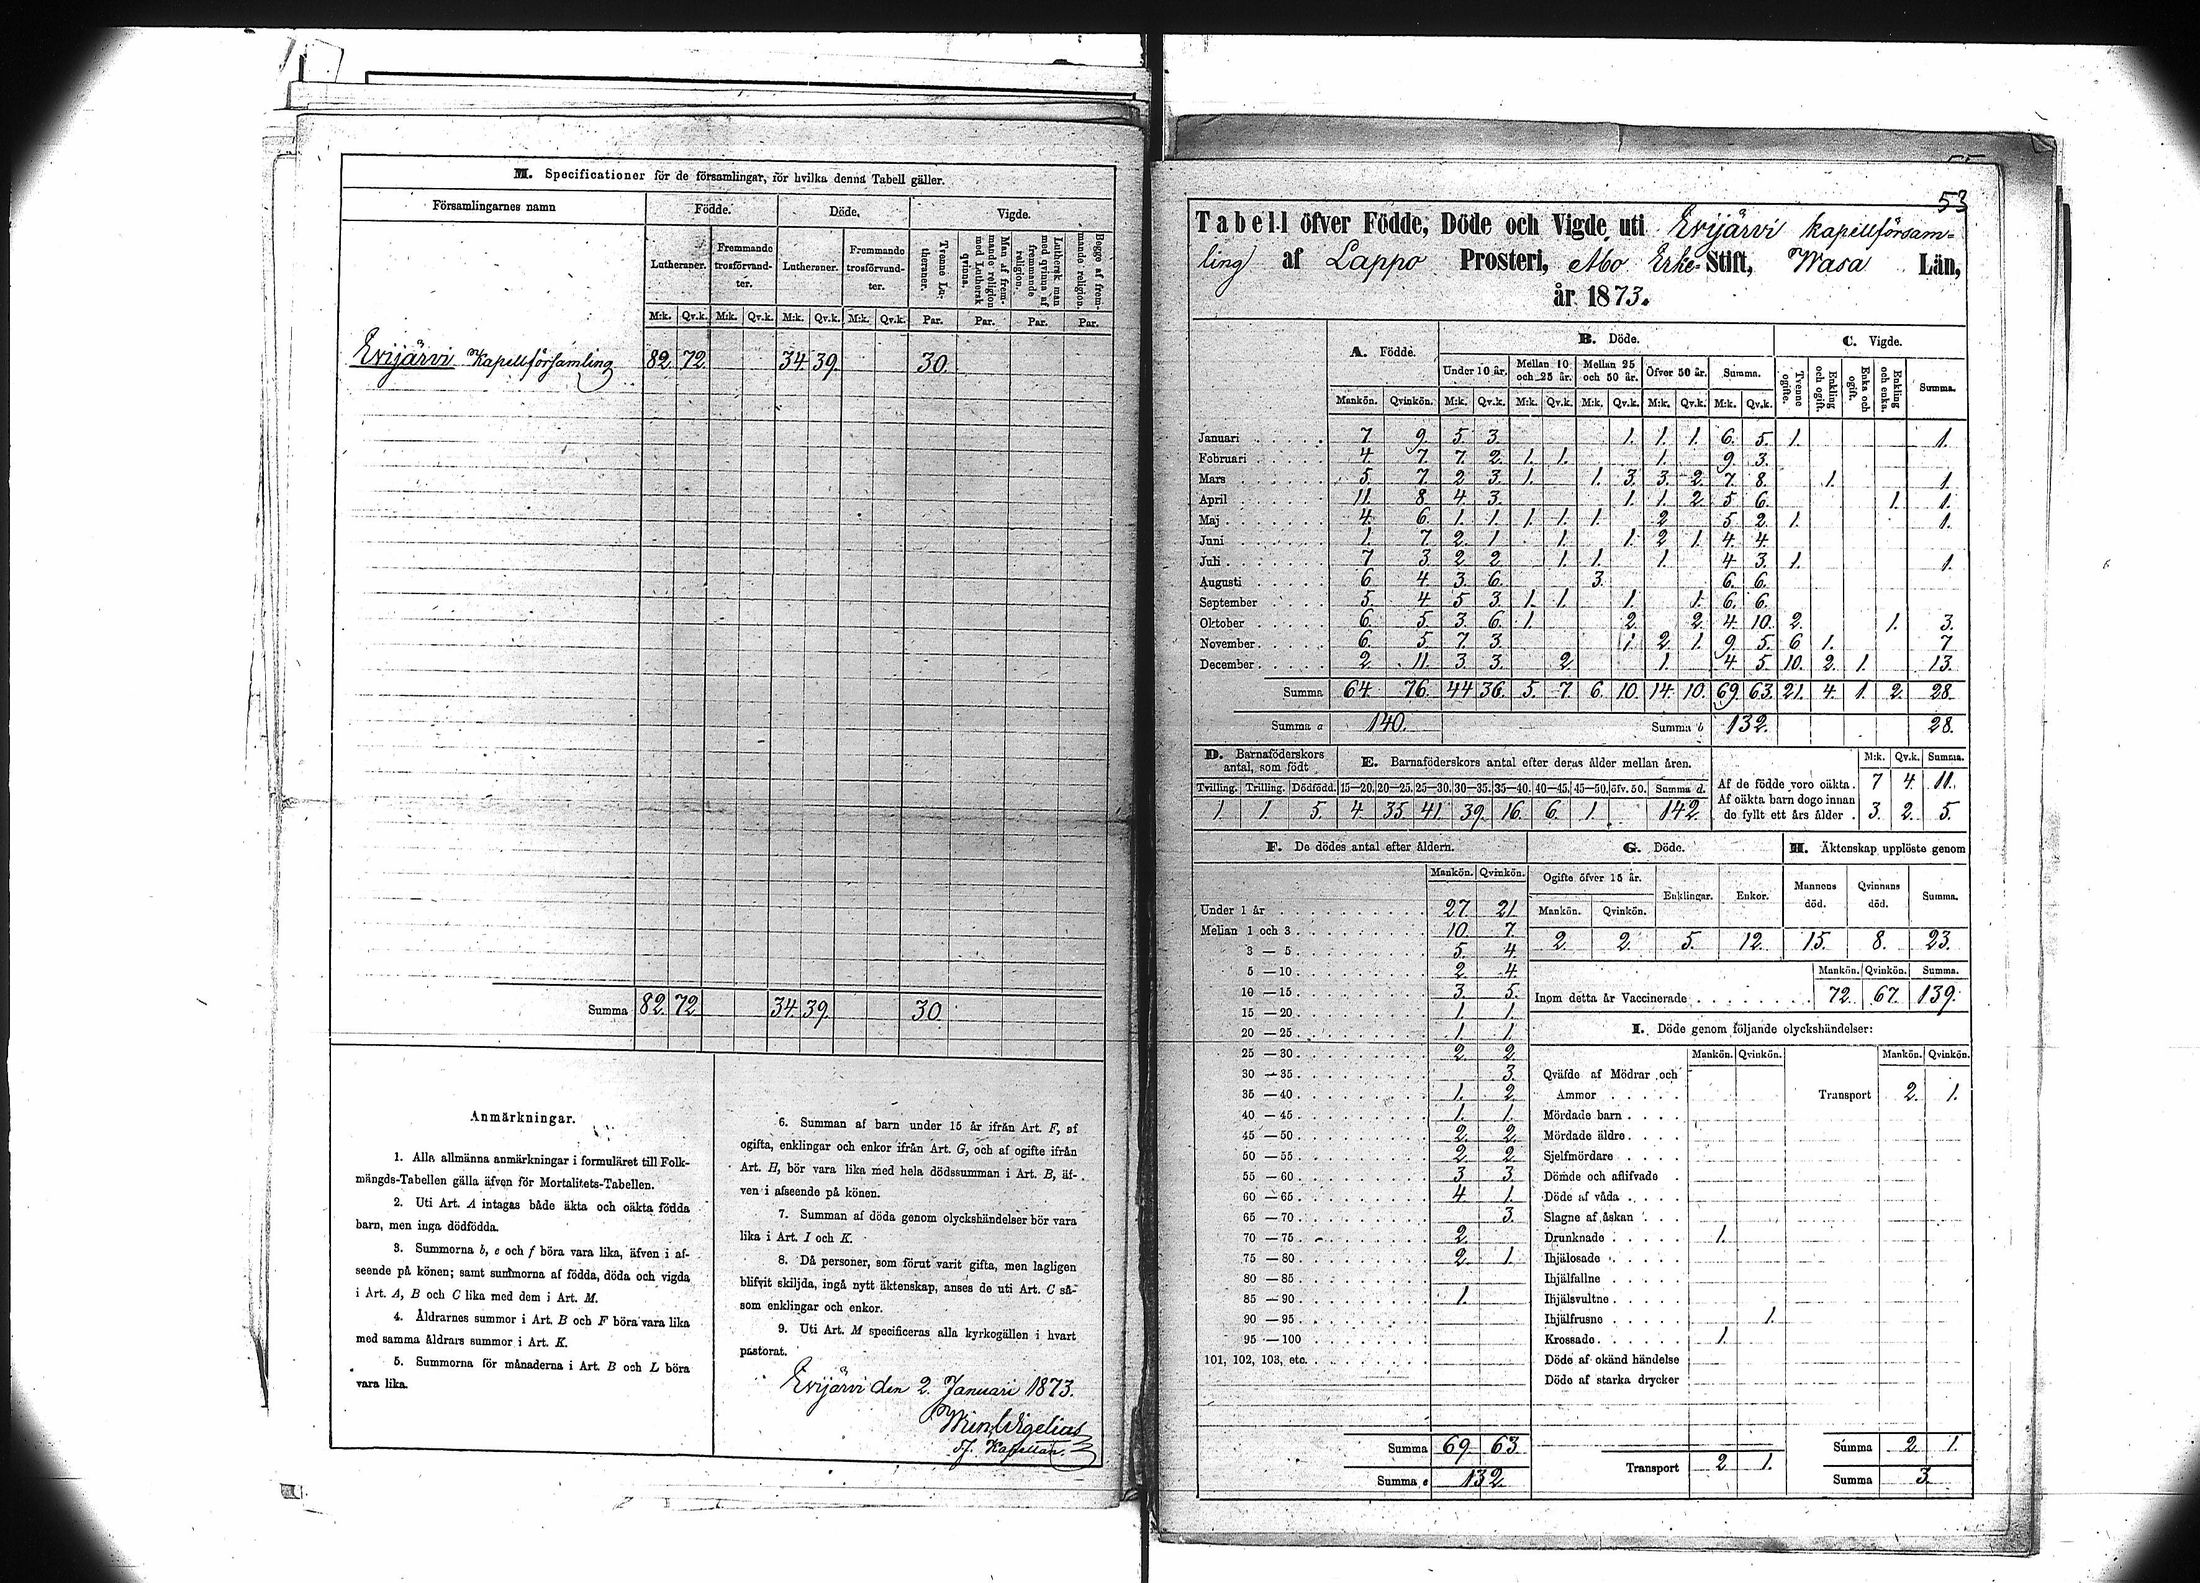 M. Specificationer för de församlingar, för hvilka denna Tabell gäller.
Församlingarnes namn
Födde.
Döde.
Vigde.
Lutheraner.
Fremmande trosförvandter.
Lutheraner.
Fremmande trosförvandter.
Tvenne Lutheraner.
Man af fremmande religion med Luthersk qvinna.
Luthersk man med qvinna af fremmande religion.
Begge af fremmande religion.
M:k. Qv.k. M:k. Qv.k. M:k. Qv.k. M:k. Qv.k. Par. Par. Par. Par.
Evijärvi Kapellförsamling 82. 72. 34. 39. 30.
Summa 82. 72. 34. 39. 30.
Anmärkningar.
1. Alla allmänna anmärkningar i formuläret till Folk-
mängds-Tabellen gälla äfven för Mortalitets-Tabellen.
2. Uti Art. A intagas både äkta och oäkta födda
barn, men inga dödfödda.
3. Summorna b, e och f böra vara lika, äfven i af-
seende på könen; samt summorna af födda, döda och vigda
i Art. A, B och C lika med dem i Art. M.
4. Åldrarnes summor i Art. B och F böra vara lika
med samma åldrars summor i Art. K.
5. Summorna för månaderna i Art. B och L böra
vara lika.
6. Summan af barn under 15 år ifrån Art. F, af
ogifta, enklingar och enkor ifrån Art. G, och af ogifte ifrån
Art. H, bör vara lika med hela dödssumman i Art. B, äf-
ven i afseende på könen.
7. Summan af döda genom olyckshändelser bör vara
lika i Art. I och K.
8. Då personer, som förut varit gifta, men lagligen
blifvit skiljda, ingå nytt äktenskap, anses de uti Art. C så-
som enklingar och enkor.
9. Uti Art. M specificeras alla kyrkogällen i hvart
pastorat.
Evijärvi den 2. Januari 1873.
Kapellan.
53
Tabell öfver Födde, Döde och Vigde uti Evijärvi kapellförsam-
ling af Lappo Prosteri, Åbo Erke-Stift, Wasa Län,
år 1873.
A. Födde.
B. Döde.
C. Vigde.
Under 10 år.
Mellan 10 och 25 år.
Mellan 25 och 50 år.
Öfver 50 år.
Summa.
Tvenne ogifte.
Enkling och ogift.
Enka och ogift.
Enkling och enka.
Summa.
Mankön. Qvinkön. M:k. Qv.k. M:k. Qv.k. M:k. Qv.k. M:k. Qv.k. M:k. Qv.k.
Januari 7. 9. 5. 3. 1. 1. 1. 6. 5. 1. 1.
Februari 4. 7. 7. 2. 1. 1. 1. 9. 3.
Mars 5. 7. 2. 3. 1. 1. 3. 3. 2. 7. 8. 1. 1.
April 11. 8. 4. 3. 1. 1. 2. 5. 6. 1. 1.
Maj 4. 6. 1. 1. 1. 1. 1. 2 5. 2. 1. 1.
Juni 1. 7. 2. 1. 1. 1. 2. 1. 4. 4.
Juli 7 3. 2. 2. 1. 1. 1. 4. 3. 1. 1.
Augusti 6. 4. 3. 6. 3. 6. 6.
September 5. 4. 5. 3. 1. 1. 1. 1. 6. 6.
Oktober 6. 5. 3. 6. 1. 2. 2. 4. 10. 2. 1. 3.
November 6. 5. 7. 3. 1 2. 1. 9. 5. 6 1. 7
December 2. 11. 3. 3. 2. 1. 4. 5. 10. 2. 1. 13.
Summa 64. 76. 44 36. 5. 7. 6. 10. 14. 10. 69. 63. 21. 4. 1. 2. 28.
Summa a 140. Summa b 132. 28.
D. Barnaföderskors antal, som födt
E. Barnaföderskors antal efter deras ålder mellan åren.
M:k. Qv.k. Summa.
Tvilling. Trilling. Dödfödd. 15—20. 20—25. 25—30. 30—35. 35—40. 40—45. 45—50. öfv. 50. Summa d.
1. 1. 5. 4. 35. 41. 39. 16. 6. 1. 142
Af de födde voro oäkta. 7 4. 11.
Af oäkta barn dogo innan
de fyllt ett års ålder. 3. 2. 5.
F. De dödes antal efter åldern.
Mankön. Qvinkön.
Under 1 år 27. 21.
Mellan 1 och 3 10. 7.
3 — 5 5. 4.
5 — 10 2. 4.
10 — 15 3. 5.
15 — 20 1. 1.
20 — 25 1. 1.
25 — 30 2. 2.
30 — 35 3.
35 — 40 1. 2.
40 — 45 1. 1.
45 — 50 2. 2.
50 — 55 2. 2.
55 — 60 3. 3.
60 — 65 4. 1.
65 — 70 3.
70 — 75 2.
75 — 80 2. 1.
80 — 85
85 — 90 1.
90 — 95
95 — 100
101, 102, 103, etc.
Summa 69. 63.
Summa e 132.
G. Döde.
Ogifte öfver 15 år.
Enklingar.
Enkor.
Mankön. Qvinkön.
2. 2. 5. 12.
H. Äktenskap upplöste genom
Mannens död.
Qvinnans död.
Summa.
15. 8. 23.
Mankön. Qvinkön. Summa.
Inom detta år Vaccinerade 72. 67. 139.
I. Döde genom följande olyckshändelser:
Mankön. Qvinkön. Mankön. Qvinkön.
Qväfde af Mödrar och
Ammor
Mördade barn
Mördade äldre
Sjelfmördare
Dömde och aflifvade
Döde af våda
Slagne af åskan
Drunknade 1.
Ihjälosade
Ihjälfallne
Ihjälsvultne
Ihjälfrusne 1.
Krossade 1.
Döde af okänd händelse
Döde af starka drycker
Transport 2 1.
Transport 2. 1.
Summa 2. 1.
Summa 3.